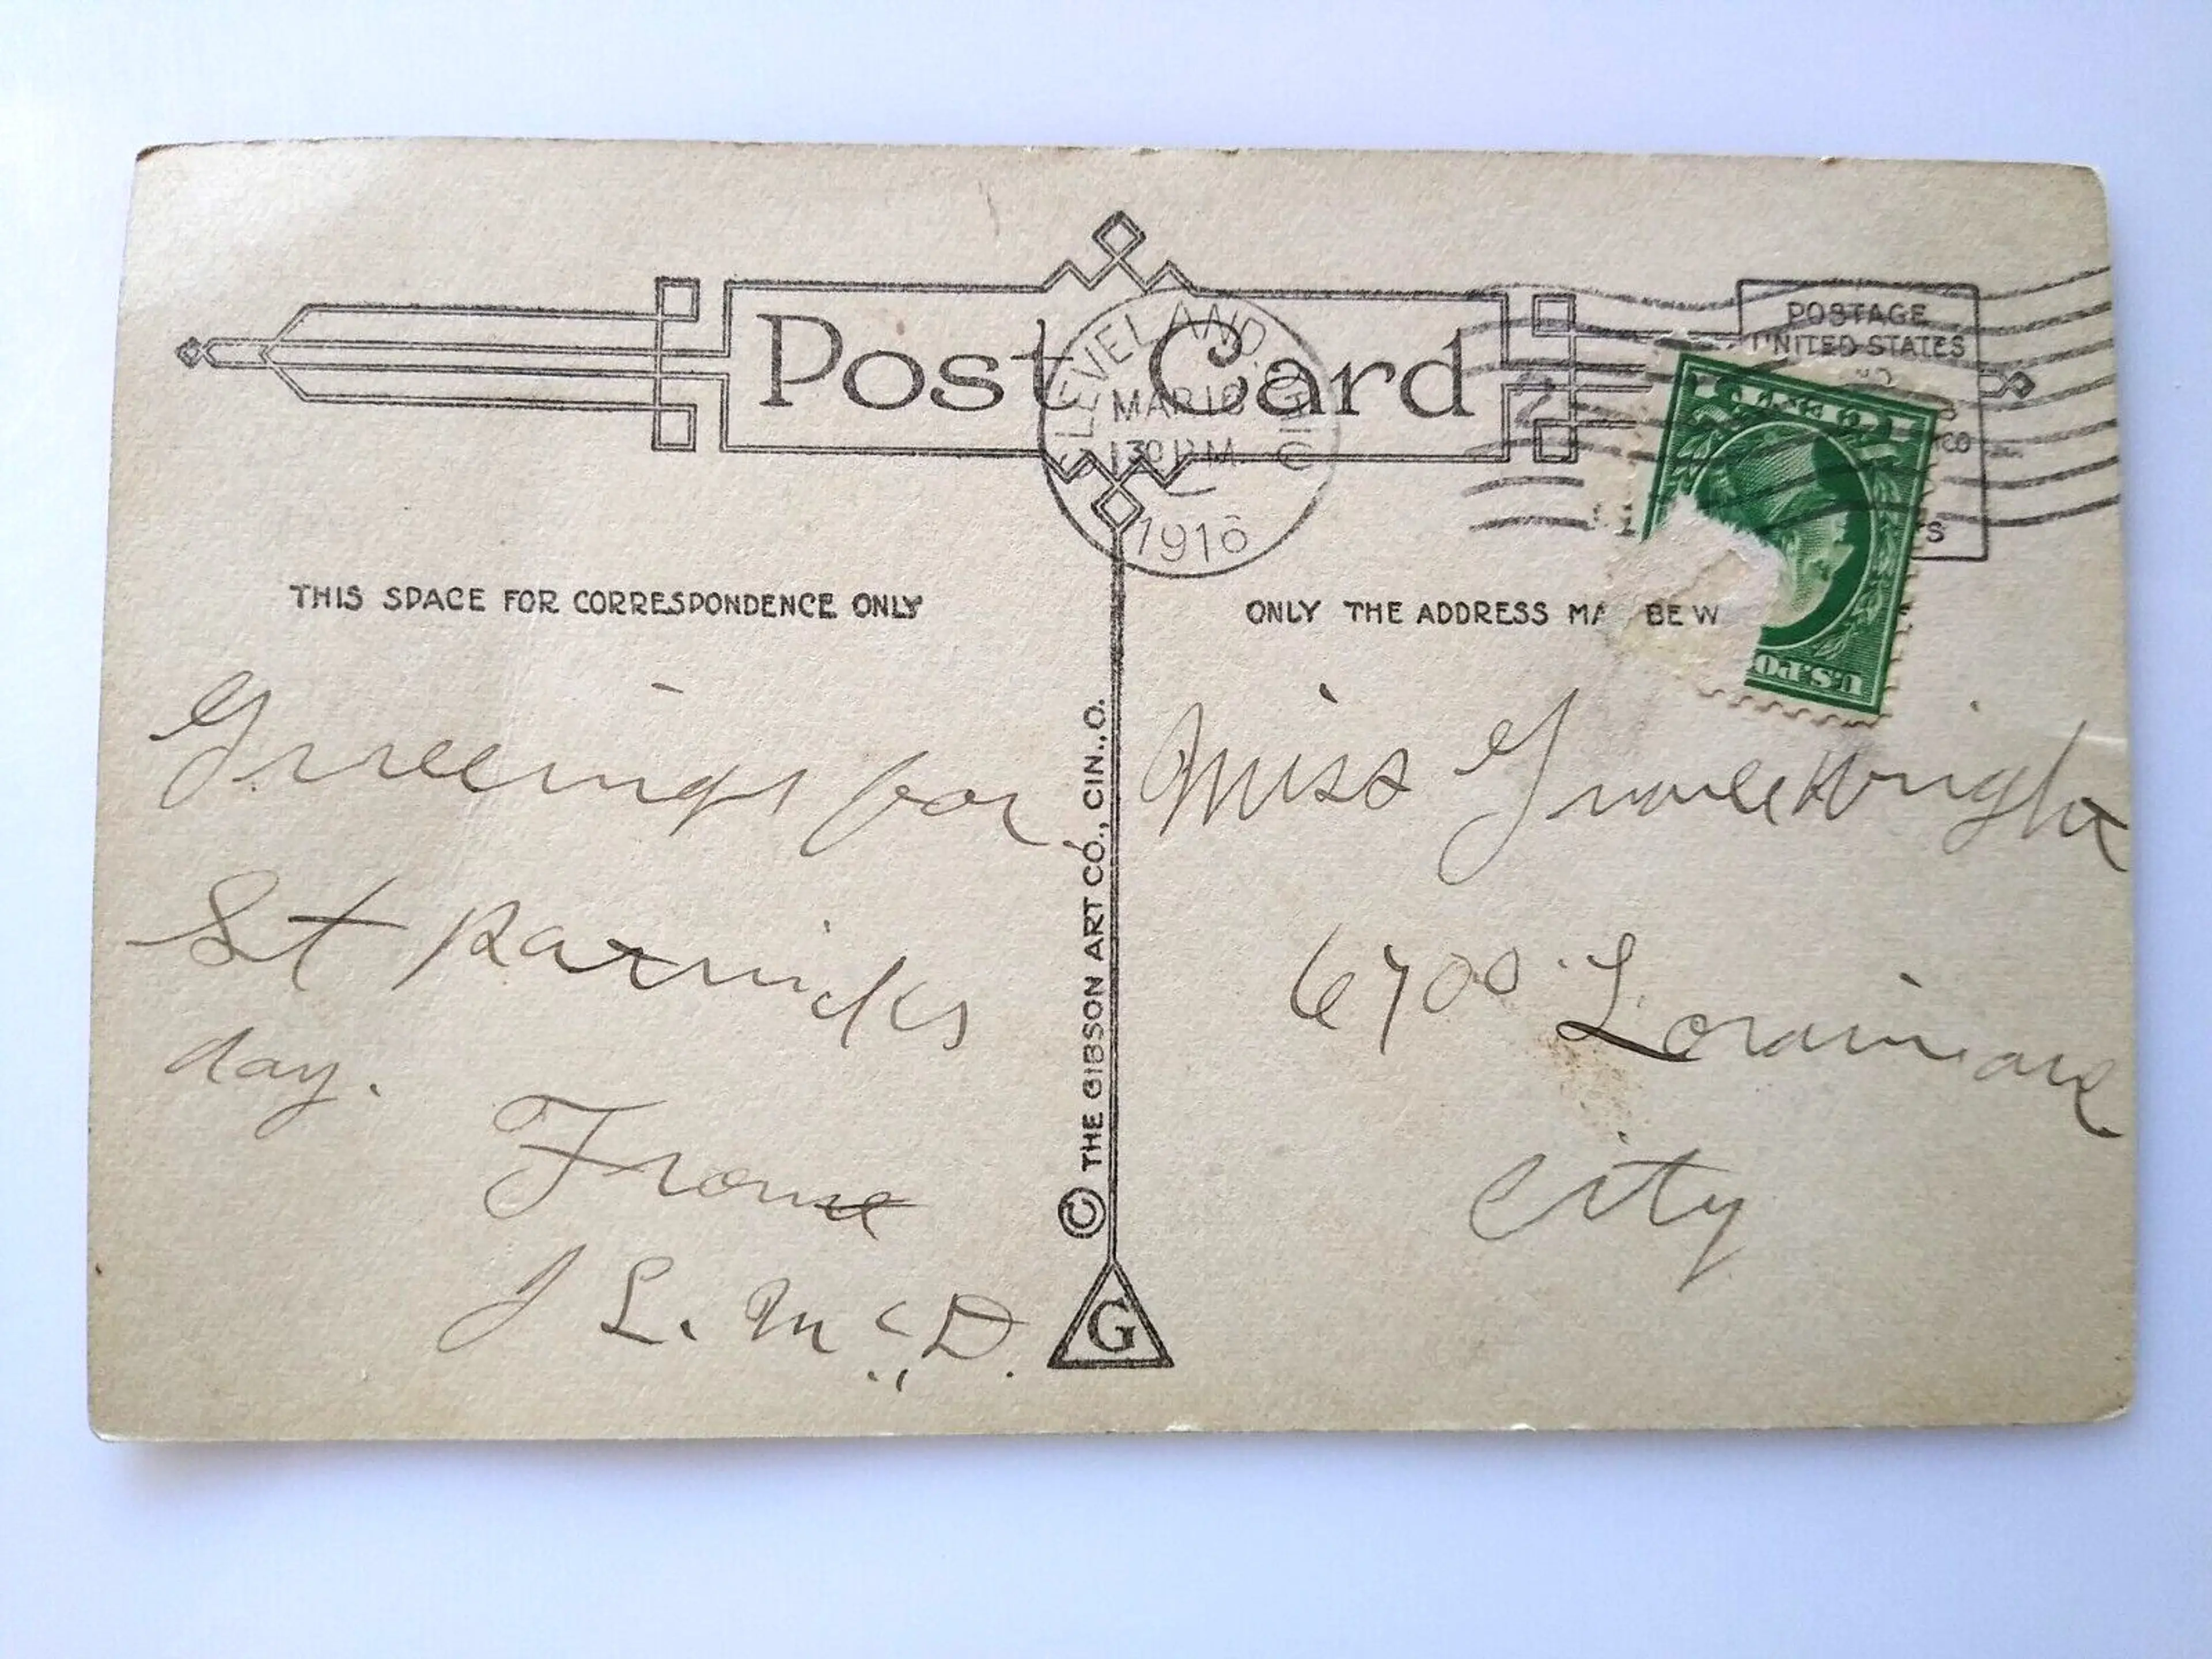 Post Card
CLEVELAND, OHIO
MAR 16
130 PM
1916
POSTAGE
UNITED STATES
THIS SPACE FOR CORRESPONDENCE ONLY
ONLY THE ADDRESS MA BE W
Greetings for
St Patricks
day.
From
J L. McD.
© THE GIBSON ART CO., CIN., O.
G
Miss Grace Wright
6700 Lorain ave
City